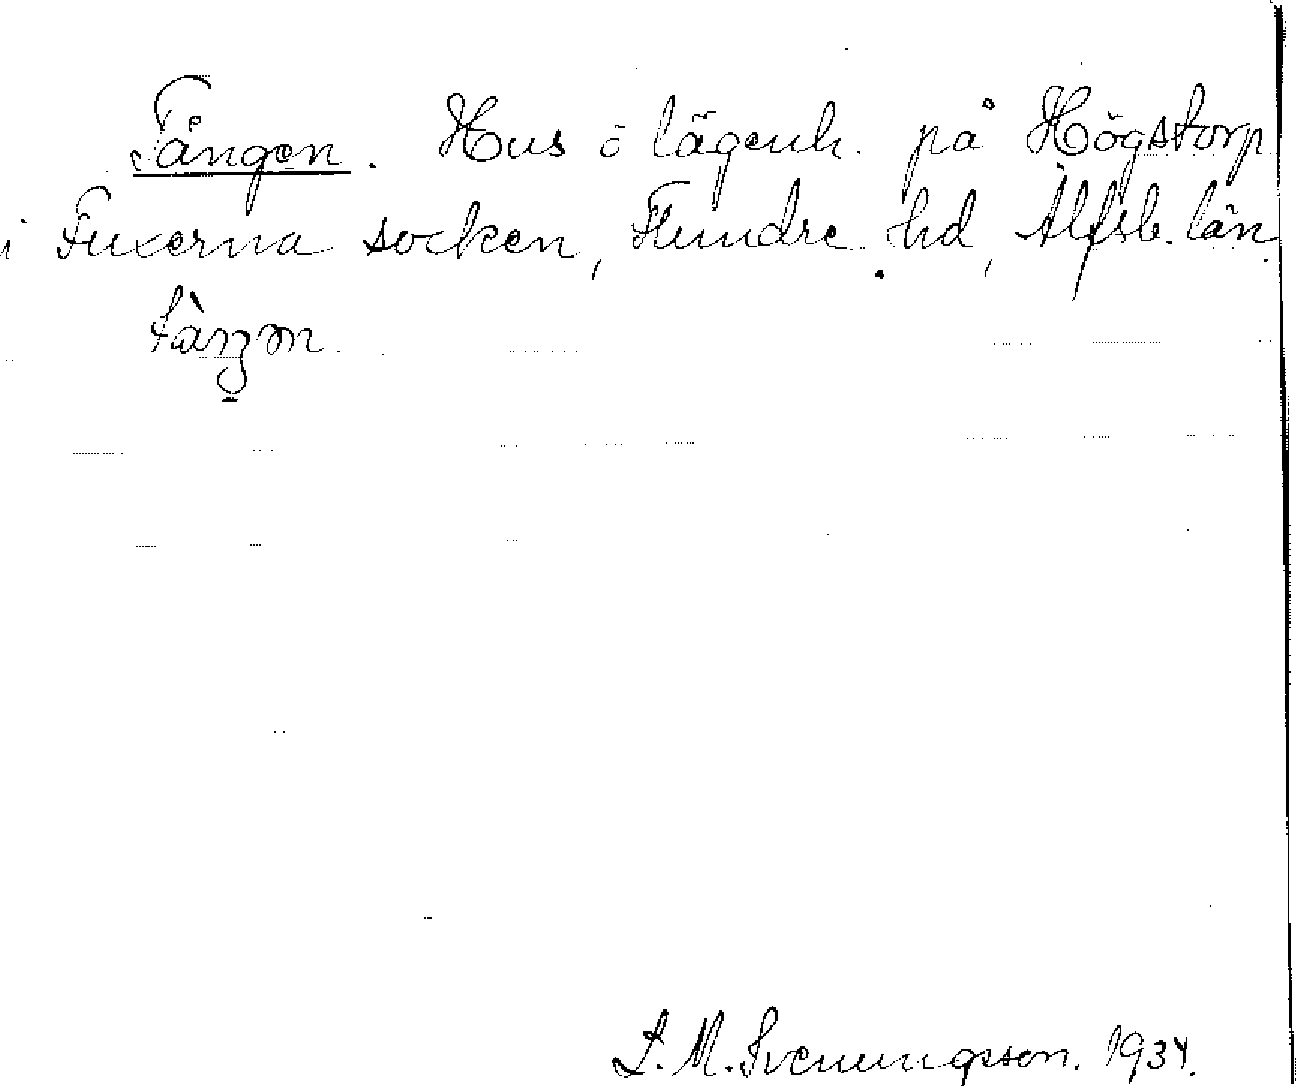 Tången. Hus o lägenh. på Högstorp
i Fuxerna socken, Flundre hd, Älfsb. län.
S. M. Svenungsson. 1934.